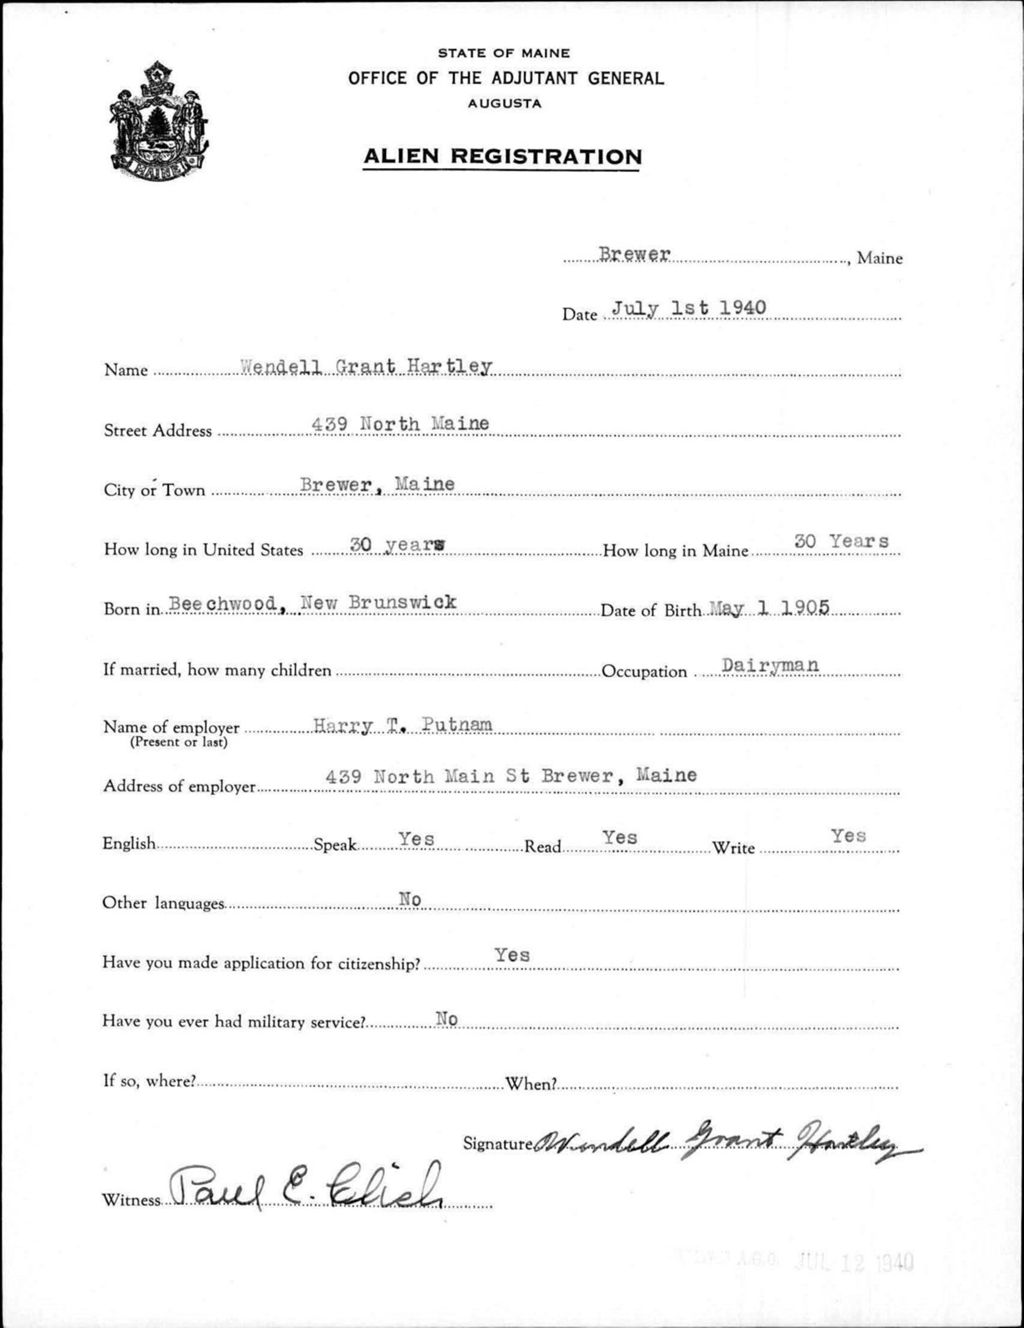 STATE OF MAINE
OFFICE OF THE ADJUTANT GENERAL
AUGUSTA
ALIEN REGISTRATION
MAINE
Brewer, Maine
Date July 1st 1940
Name Wendell Grant Hartley
Street Address 439 North Maine
City or Town Brewer, Maine
How long in United States 30 years How long in Maine 30 Years
Born in Beechwood, New Brunswick Date of Birth May 1 1905
If married, how many children Occupation Dairyman
Name of employer Harry T. Putnam
(Present or last)
Address of employer 439 North Main St Brewer, Maine
English Speak Yes Read Yes Write Yes
Other languages No
Have you made application for citizenship? Yes
Have you ever had military service? No
If so, where? When?
Signature Wendell Grant Hartley
Witness Paul E.
A.G.O. JUL 12 1940